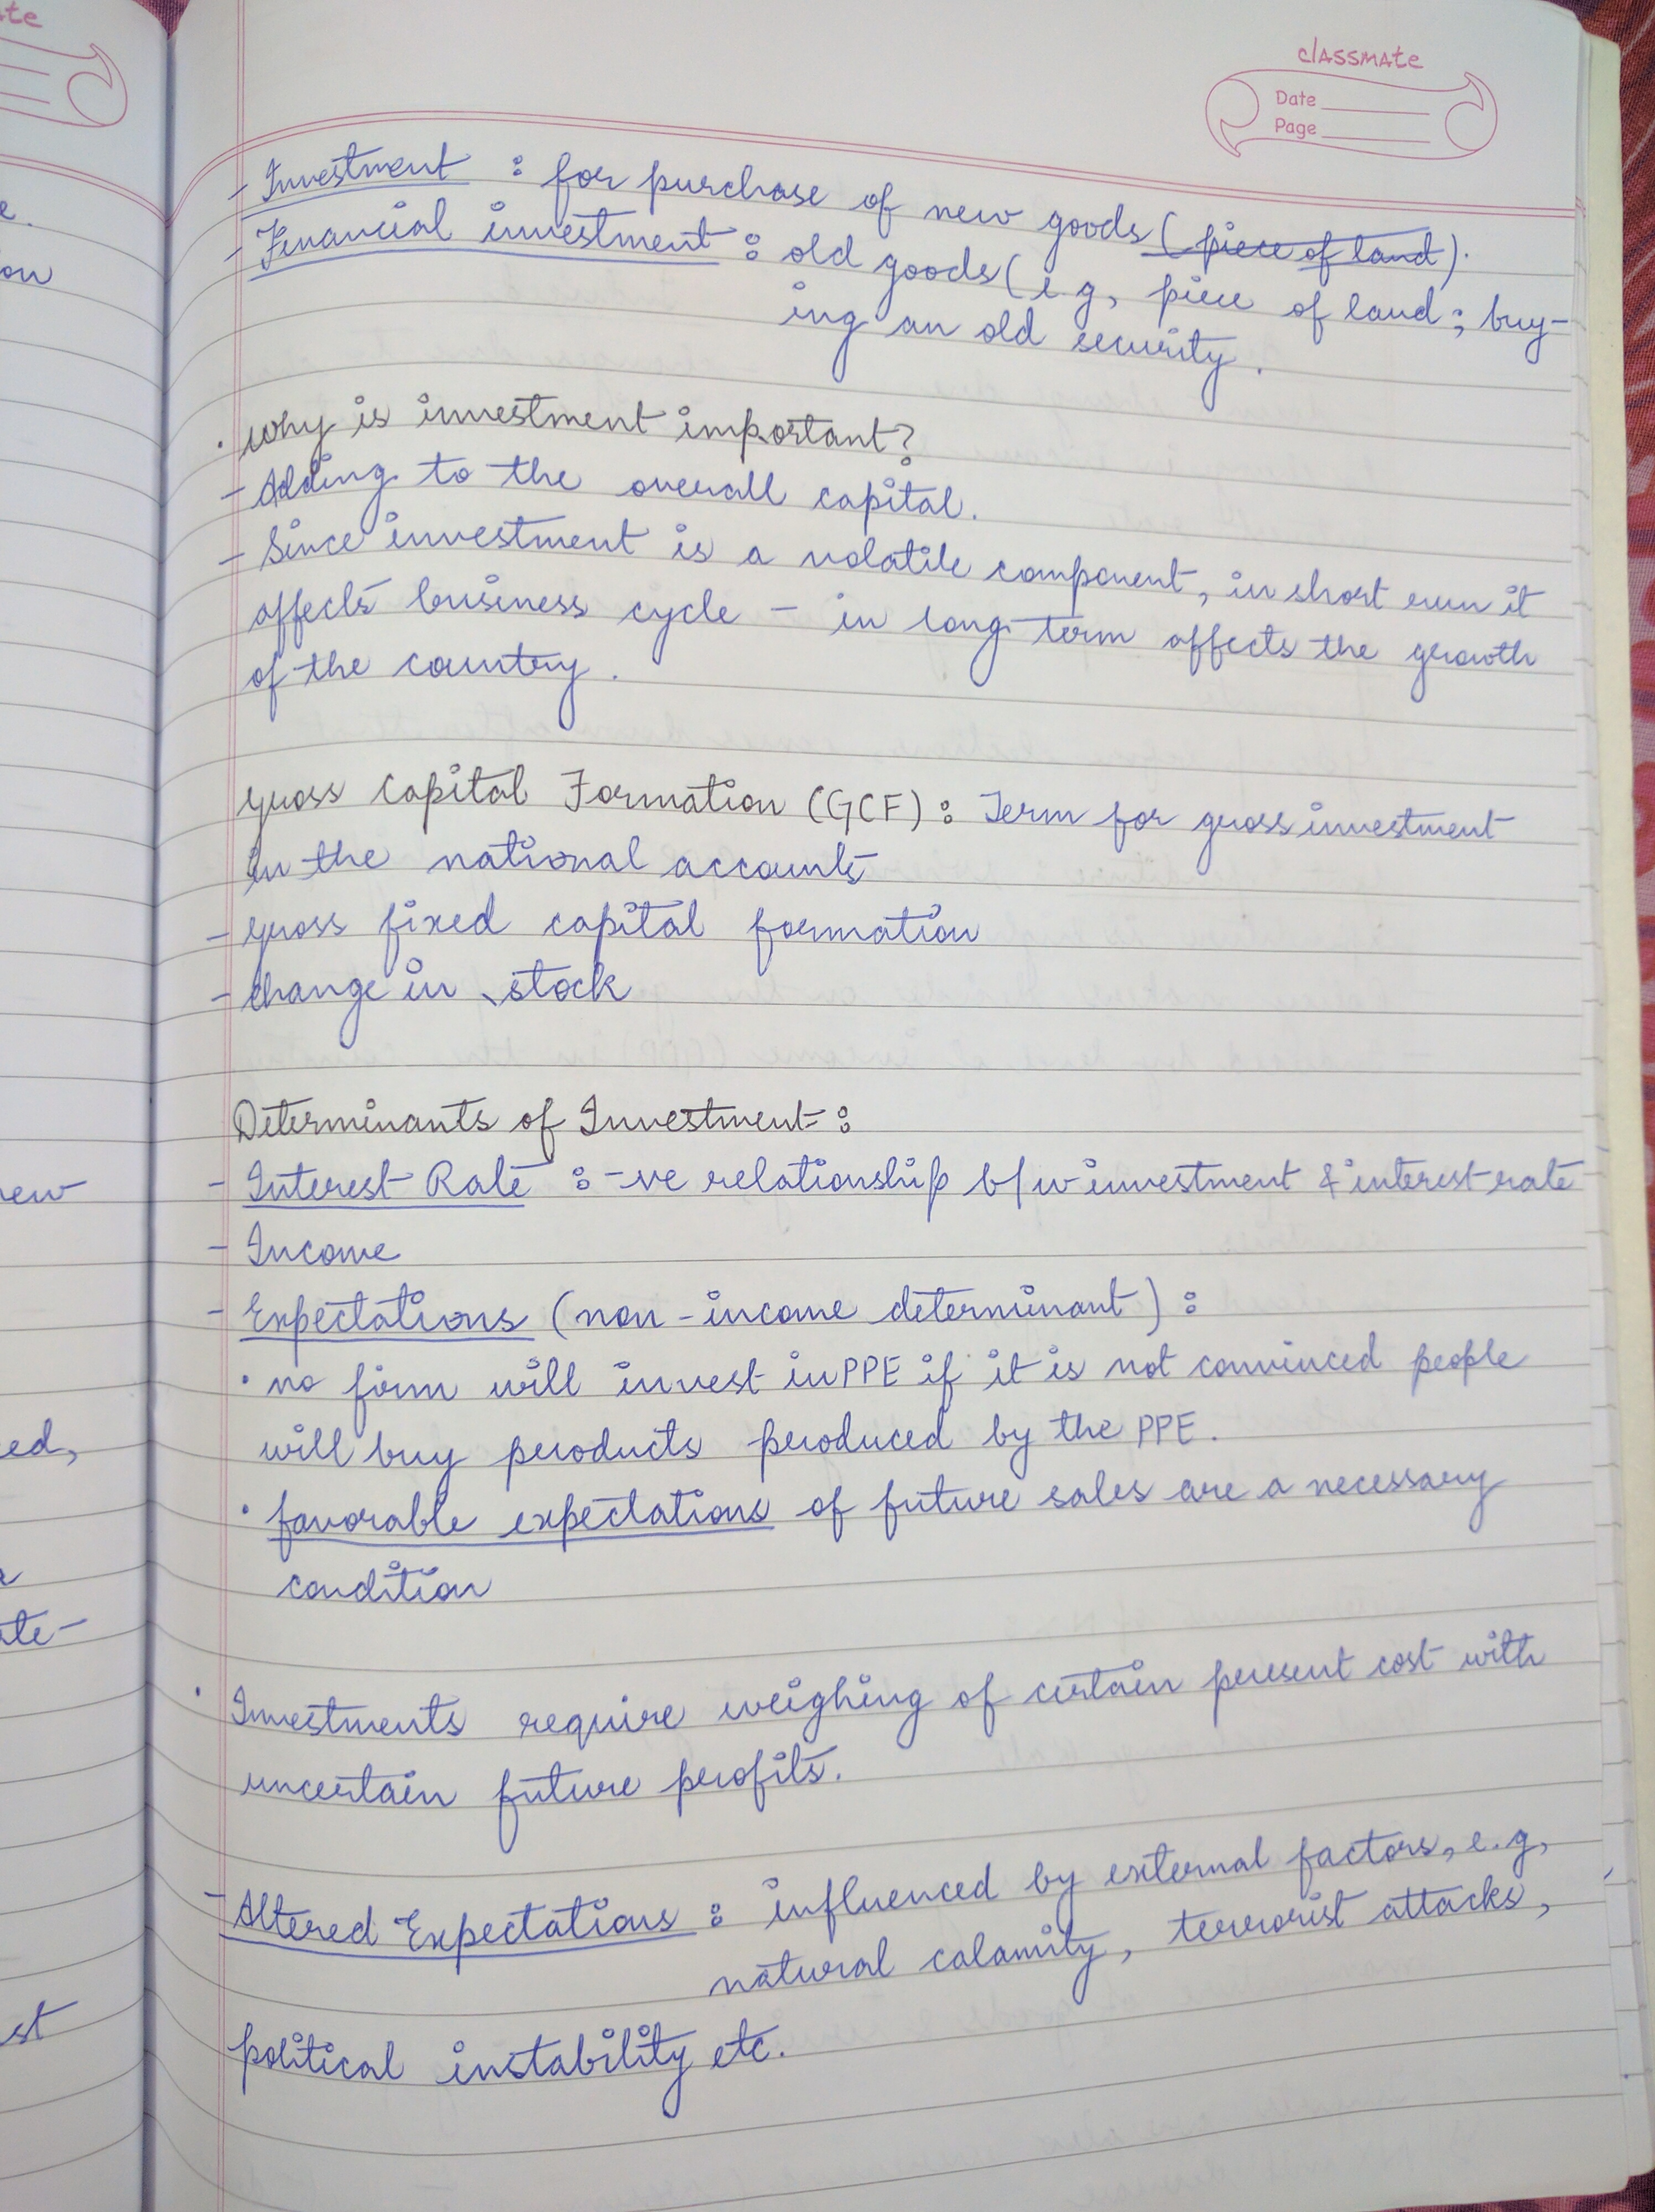 te
e.
on
new
ed,
te-
st
classmate
Date
Page
- Investment : for purchase of new goods (piece of land).
- Financial investment : old goods (e.g, piece of land ; buy-
ing an old security.
· Why is investment important?
- Adding to the overall capital.
- Since investment is a volatile component, in short run it
affects business cycle - in long term affects the growth
of the country.
Gross Capital Formation (GCF) : Term for gross investment
in the national accounts
- Gross fixed capital formation
- Change in stock
Determinants of Investment :
- Interest Rate : -ve relationship b/w investment & interest rate
- Income
- Expectations (non-income determinant) :
· no firm will invest in PPE if it is not convinced people
will buy products produced by the PPE.
· favorable expectations of future sales are a necessary
condition
· Investments require weighing of certain present cost with
uncertain future profits.
- Altered Expectations : influenced by external factors, e.g,
natural calamity, terrorist attacks,
political instability etc.